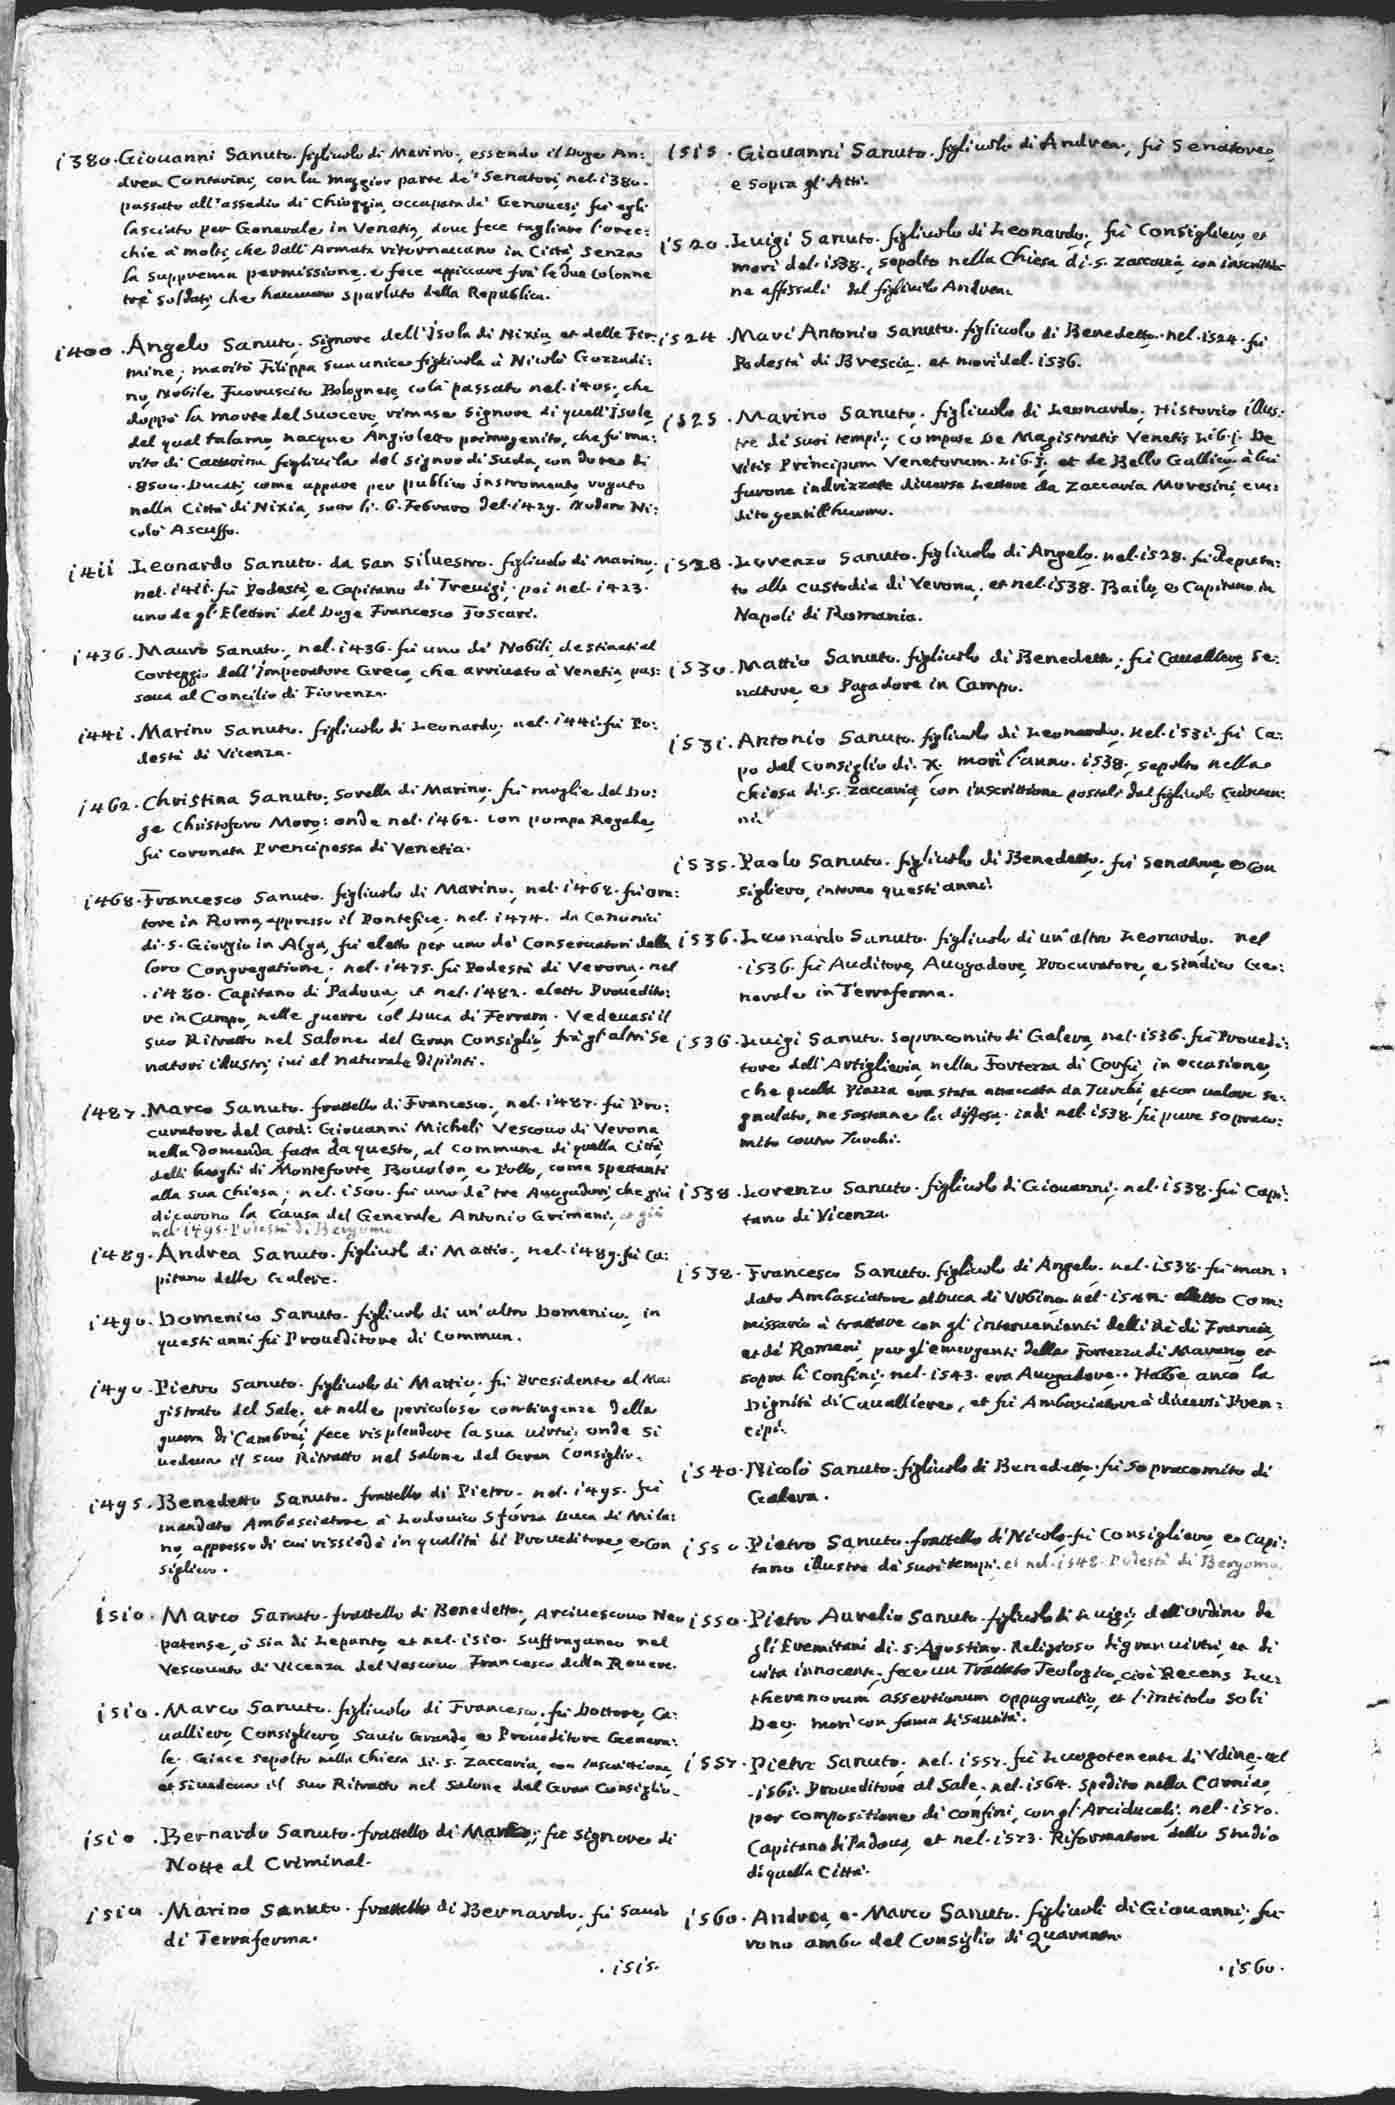 i380. Giouanni Sanuto. figliuolo di Marino, essendo il Doge An:
drea Contarini, con la maggior parte de' Senatori, nel. i380.
passato all'assedio di Chioggia, occupata da' Genouesi, fù egli
lasciato per Generale in Venetia, doue fece tagliare l'orec:
chie à molti, che dall'Armata ritornauano in Città, senza
la supprema permissione, e fece appiccare frà le due Colonne
trè soldati, che haueuano sparlato della Republica.
i400. Angelo Sanuto, Signore dell'Isola di Nixia, et delle Fer:
mine, maritò Filippa sua unica figliuola à Nicolò Gozzadi:
ni, Nobile Fuoruscito Bolognese, colà passato nel. i405, che
doppò la morte del Suocero, rimase Signore di quell'Isole,
del qual talamo, nacque Angioletto primogenito, che fù ma:
rito di Catterina figliuola del Signor di Suda, con dote di
.8500. Ducati, come appare per publico instromento, rogato
nella Città di Nixia, sotto li. 6. Febraro del. i429. Nodaro Ni:
colò Ascuffo.
i4ii. Leonardo Sanuto. da San Siluestro. figliuolo di Marino,
nel. i4ii. fù Podestà, e Capitano di Treuigi, poi nel. i423.
uno de gl'Elettori del Doge Francesco Foscari.
i436. Mauro Sanuto, nel. i436. fù uno de' Nobili, destinati al
Corteggio dell'Imperatore Greco, che arriuato à Venetia, pas:
saua al Concilio di Fiorenza.
i44i. Marino Sanuto. figliuolo di Leonardo, nel. i44i. fù Po:
destà di Vicenza.
i462. Christina Sanuto, Sorella di Marino, fù moglie del Do:
ge Christoforo Moro: onde nel. i462. con pompa Regale,
fù coronata Prencipessa di Venetia.
i468. Francesco Sanuto. figliuolo di Marino, nel. i468. fù Ora:
tore in Roma, appresso il Pontefice. nel. i474. da Canonici
di. S. Giorgio in Alga, fù eletto per uno de' Conseruatori della
loro Congregatione, nel. i475. fù Podestà di Verona. nel
.i480. Capitano di Padoua, et nel. i482. eletto Prouedito:
re in Campo, nelle guerre col Duca di Ferrara. Vedeuasi il
suo Ritratto nel Salone del Gran Consiglio, frà gl'altri Se
natori illustri, iui al naturale dipinti.
i487. Marco Sanuto. frattello di Francesco, nel. i487. fù Pro:
curatore del Card: Giouanni Micheli Vescouo di Verona
nella domanda fatta da questo, al Commune di quella Città,
delli luoghi di Monteforte, Bouolon, e Pollo, come spettanti
alla sua Chiesa; nel. i500. fù uno de' tre Auogadori, che giu
dicarono la Causa del Generale Antonio Grimani, et già
nel. i495. Podestà di Bergomo.
i489. Andrea Sanuto. figliuolo di Mattio, nel. i489. fù Ca:
pitano delle Galere.
i490. Domenico Sanuto. figliuolo di un'altro Domenico, in
questi anni fù Proueditore di Commun.
i490. Pietro Sanuto. figliuolo di Mattio. fù Presidente al Ma:
gistrato del Sale, et nelle pericolose contingenze della
guerra di Cambrai, fece risplendere la sua uirtù, onde si
uedeua il suo Ritratto nel Salone del Gran Consiglio.
i495. Benedetto Sanuto. frattello di Pietro. nel. i495. fù
mandato Ambasciatore à Lodouico Sforza Duca di Mila:
no, appresso di cui rissiedè in qualità di Proueditore, e Con
sigliero.
i5i0. Marco Sanuto. frattello di Benedetto, Arciuescouo Neu
patense, ò sia di Lepanto, et nel. i5i0. Suffraganeo nel
Vescouato di Vicenza del Vescouo Francesco della Rouere.
i5i0. Marco Sanuto. figliuolo di Francesco, fù Dottore, Ca:
ualliero, Consigliero, Sauio Grande, e Proueditore Genera:
le. Giace sepolto nella Chiesa di. S. Zaccaria, con Inscrittione,
et si uedeua il suo Ritratto nel Salone del Gran Consiglio.
i5i0. Bernardo Sanuto. frattello di Marco, fù Signore di
Notte al Criminal.
i5i0. Marino Sanuto. frattello di Bernardo, fù Sauio
di Terraferma.
.i5i5.
i5i5. Giouanni Sanuto. figliuolo di Andrea, fù Senatore,
e sopra gl'Atti.
i520. Luigi Sanuto. figliuolo di Leonardo, fù Consigliero, et
morì del. i538., sepolto nella Chiesa di. S. Zaccaria, con inscrittio
ne affissali dal figliuolo Andrea.
i524. Marc'Antonio Sanuto. figliuolo di Benedetto. nel. i524. fù
Podestà di Brescia, et morì del. i536.
i525. Marino Sanuto, figliuolo di Leonardo, Historico illus:
tre de' suoi tempi, compose De Magistratis Venetis Lib. j. De
Vitis Principum Venetorum. Lib. j. et de Bello Gallico. à lui
furono indrizzate diuerse Lettere da Zaccaria Moresini, eru:
dito gentil'huomo.
i528. Lorenzo Sanuto. figliuolo di Angelo. nel. i528. fù deputa:
to alla custodia di Verona, et nel. i538. Bailo, e Capitano in
Napoli di Romania.
i530. Mattio Sanuto. figliuolo di Benedetto, fù Cauallier, Se:
natore, e Pagadore in Campo.
i53i. Antonio Sanuto. figliuolo di Leonardo. nel. i53i. fù Ca:
po del Consiglio di. X. morì l'anno. i538., sepolto nella
Chiesa di. S. Zaccaria, con inscrittione postali dal figliuolo Giouan:
ni.
i535. Paolo Sanuto. figliuolo di Benedetto. fù Senatore, e Con
sigliero, intorno questi anni.
i536. Leonardo Sanuto. figliuolo di un'altro Leonardo. nel
.i536. fù Auditore, Auogadore, Procuratore, e Sindico Ge:
nerale in Terraferma.
i536. Luigi Sanuto. sopracomito di Galera, nel. i536. fù Prouedi:
tore dell'Artiglieria, nella Fortezza di Corfù, in occasione,
che quella Piazza era stata attaccata da Turchi, et con ualore se:
gnalato, ne sostenne la diffesa. indi nel. i538. fù pure sopraco:
mito contro Turchi.
i538. Lorenzo Sanuto. figliuolo di Giouanni, nel. i538. fù Capi:
tano di Vicenza.
i538. Francesco Sanuto. figliuolo di Angelo. nel. i538. fù man:
dato Ambasciatore al Duca di Vrbino. nel. eletto Com:
missario à trattare con gl'interuenienti delli Rè di Francia,
et de' Romani, per gl'emergenti della Fortezza di Marano, et
sopra li Confini. nel. i543. era Auogadore. Hebbe anco la
Dignità di Cauallier, et fù Ambasciatore à diuersi Pren:
cipi.
i540. Nicolò Sanuto. figliuolo di Benedetto. fù Sopracomito di
Galera.
i550. Pietro Sanuto. frattello di Nicolò. fù Consigliero, e Capi:
tano illustre de' suoi tempi, et nel. i548. Podestà di Bergomo.
i550. Pietro Aurelio Sanuto. figliuolo di Luigi, dell'ordine de
gli Eremitani di. S. Agostino. Religioso di gran uirtù, et di
uita innocente, fece un Trattato Teologico, cioè Recens Lu:
theranorum assertionum oppugnatio, et l'intitolò Soli
Deo. morì con fama di Santità.
i557. Pietro Sanuto, nel. i557. fù Luogotenente di Vdine, nel
.i56i. Proueditore al Sale. nel. i564. spedito nella Carnia,
per compositione di confini, con gl'Arciducali, nel. i570.
Capitano di Padoua, et nel. i573. Riformatore dello Studio
di quella Città.
i560. Andrea, e Marco Sanuto. figliuoli di Giouanni, fu
rono ambo del Consiglio di Quaranta.
.i560.